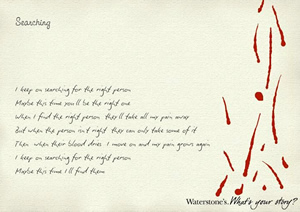 Searching
I keep on searching for the right person
Maybe this time you'll be the right one
When I find the right person they'll take all my pain away
But when the person isn't right they can only take some of it
Then when their blood dries I move on and my pain grows again
I keep on searching for the right person
Maybe this time I'll find them
Waterstone's. What's your story?